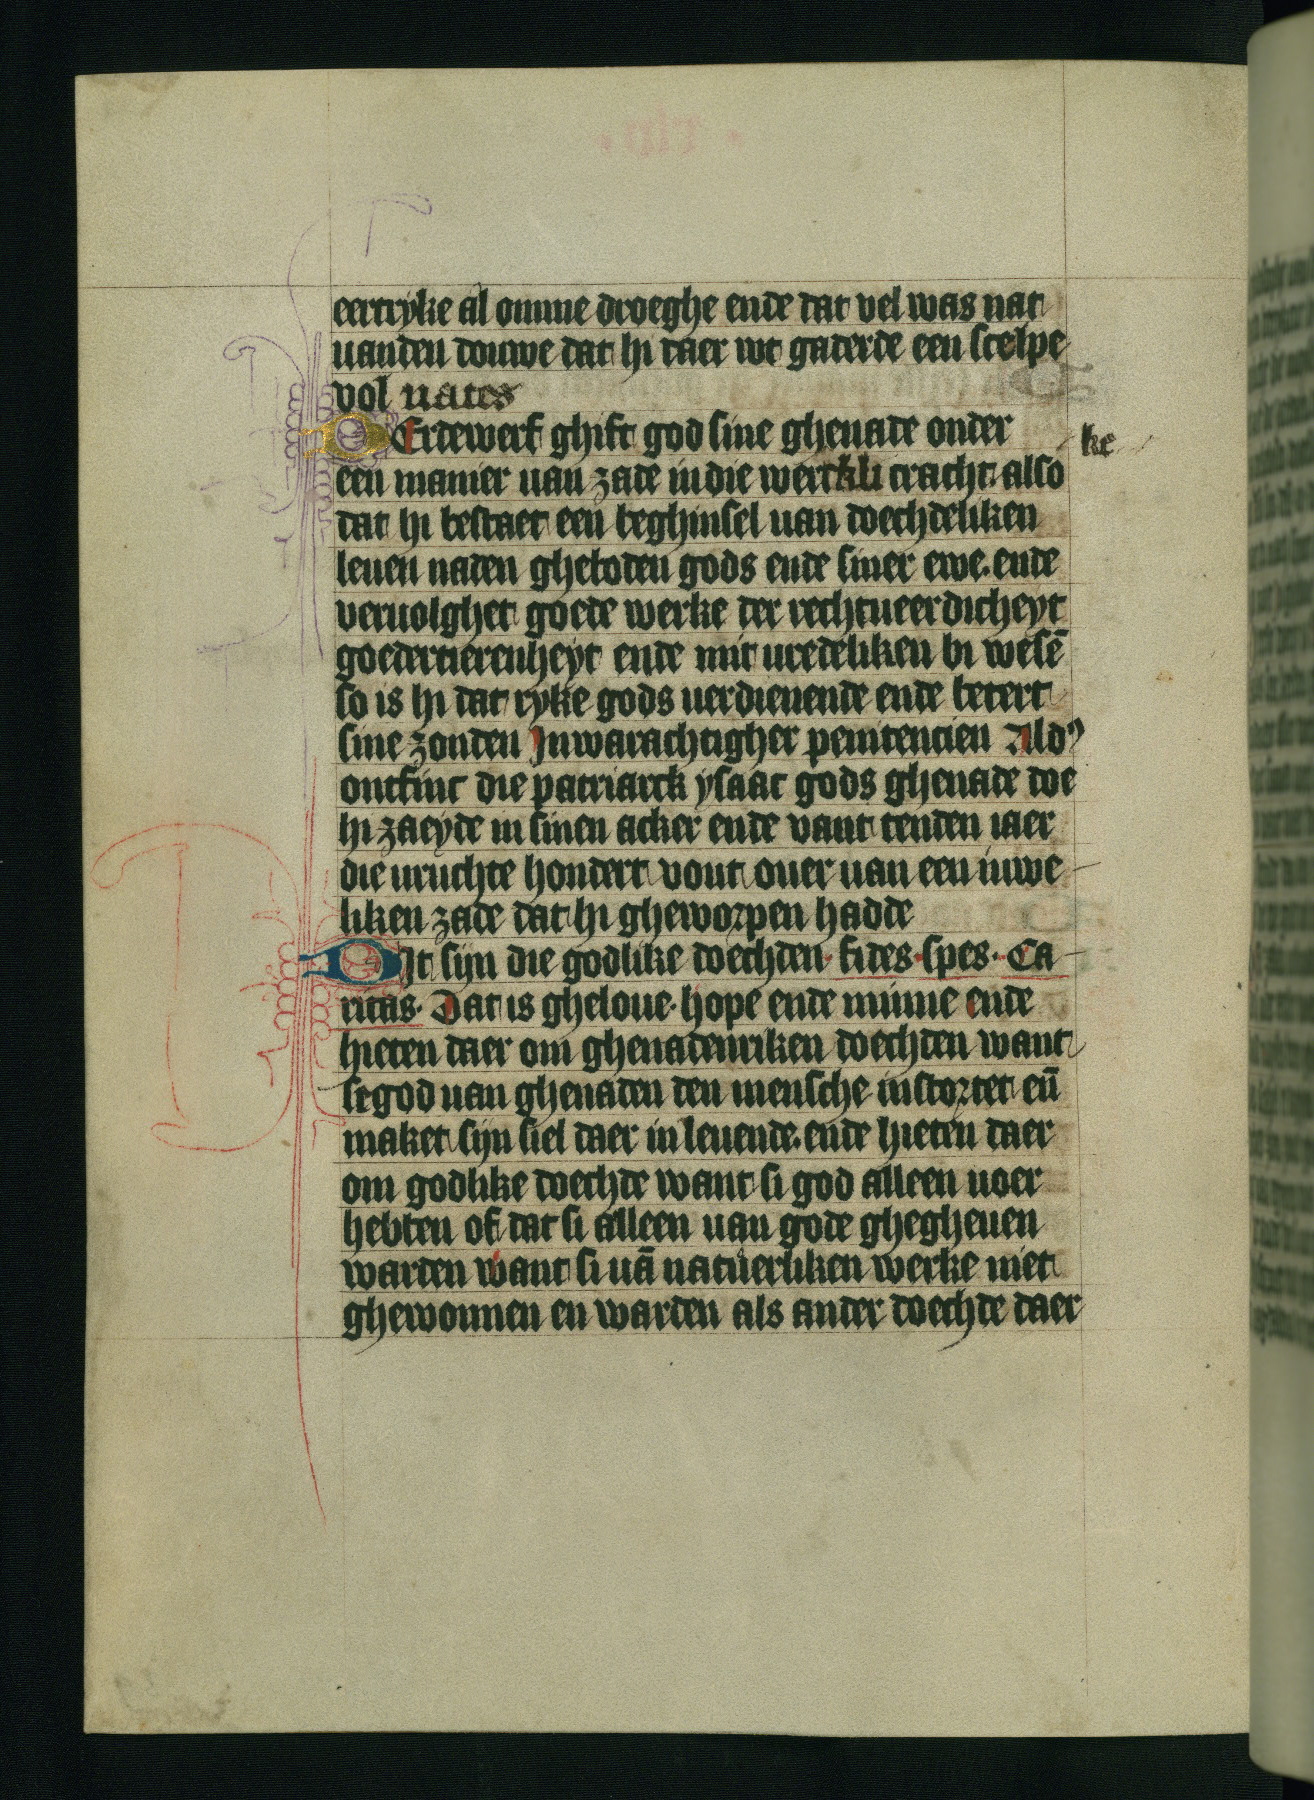 eertryke al omme droeghe ende dat vel was nat
uanden douwe dat hi daer wt gaderde een scelpe
vol nates
DErdewerf ghift god sine ghenade onder
een manier uan zade in die werkli cracht also
ke
dat hi bestaet een beghinsel uan doechdeliken
leuen naden gheboden gods ende siner ewe. ende
veruolghet goede werke der rechtueerdicheyt
goedertierenheyt ende mit uredeliken bi wesē
so is hi dat ryke gods uerdienende ende betert
sine zonden Inwarachtigher penitencien Aldꝰ
ontfinc die patriarck ysaac gods ghenade doe
hi zaeyde in sinen acker ende vant tenden iaer
die uruchte hondert vout ouer uan een iuwe
liken zade dat hi gheworpen hadde
DIt sijn die godlike doechden· fides· spes· Ca
ritas· Dat is gheloue· hope ende minne ende
hieten daer om ghenadenriken doechden want
se god uan ghenaden den mensche instortet en̄
maket sijn siel daer in leuende. ende hieten daer
om godlike doechde want si god alleen uoer
hebben of dat si alleen uan gode ghegheuen
warden want si uā natuerliken werke niet
ghewonnen en warden als ander doechde daer